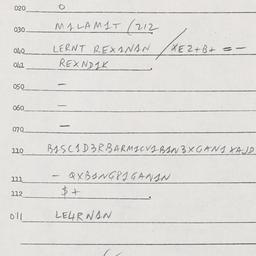 020 O
030 M1LAM1T (212
040 LERNT REX1N1N /XE2+B+ =-
041 REXND1K
050 -
060 -
070 -
110 B1SC1D3RBARM1CV1B1N3XG1N1X1JD
111 - QXB1NG81G1N1N
112 $+
011 LE4RN1N